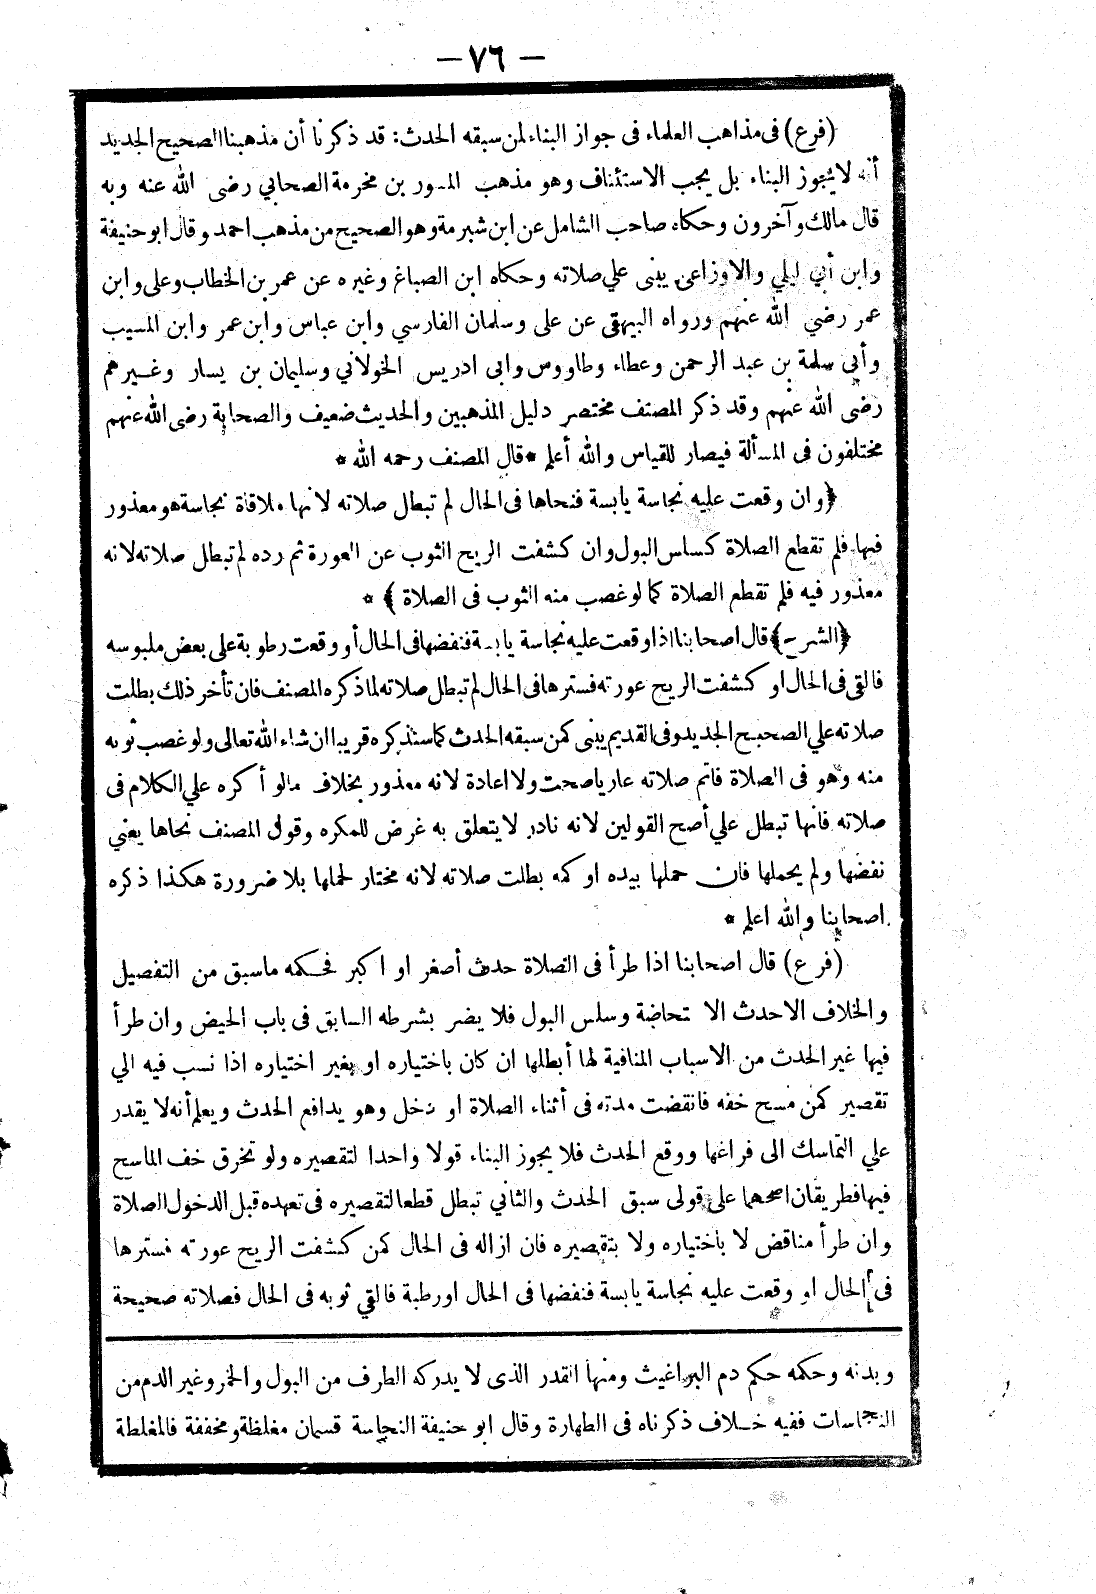 — ٧٦ —
(فرع) فى مذاهب العلماء فى جواز البناء لمن سبقه الحدث: قد ذكرنا أن مذهبنا الصحيح الجديد
أنه لا يجوز البناء بل يجب الاستئناف وهو مذهب المسور بن مخرمة الصحابي رضى الله عنه وبه
قال مالك وآخرون وحكاه صاحب الشامل عن ابن شبرمة وهو الصحيح من مذهب احمد وقال ابو حنيفة
وابن أبي ليلي والاوزاعى يبنى علي صلاته وحكاه ابن الصباغ وغيره عن عمر بن الخطاب وعلى وابن
عمر رضي الله عنهم ورواه البيهقى عن على وسلمان الفارسي وابن عباس وابن عمر وابن المسيب
وأبي سلمة بن عبد الرحمن وعطاء وطاووس وابى ادريس الخولاني وسليمان بن يسار وغيرهم
رضى الله عنهم وقد ذكر المصنف مختصر دليل المذهبين والحديث ضعيف والصحابة رضى الله عنهم
مختلفون فى المسألة فيصار للقياس والله أعلم * قال المصنف رحمه الله *
﴿وان وقعت عليه نجاسة يابسة فنحاها فى الحال لم تبطل صلاته لانها ملاقاة نجاسة هو معذور
فيها فلم تقطع الصلاة كسلس البول وان كشفت الريح الثوب عن العورة ثم رده لم تبطل صلاته لانه
معذور فيه فلم تقطع الصلاة كما لو غصب منه الثوب فى الصلاة﴾ *
﴿الشرح﴾ قال اصحابنا اذا وقعت عليه نجاسة يابسة فنفضها فى الحال أو وقعت رطوبة على بعض ملبوسه
فالقى فى الحال او كشفت الريح عورته فسترها فى الحال لم تبطل صلاته لما ذكره المصنف فان تأخر ذلك بطلت
صلاته علي الصحيح الجديد وفى القديم يبنى كمن سبقه الحدث كما سنذكره قريبا ان شاء الله تعالى ولو غصب ثوبه
منه وهو فى الصلاة فاتم صلاته عاريا صحت ولا اعادة لانه معذور بخلاف مالو أكره علي الكلام فى
صلاته فانها تبطل علي أصح القولين لانه نادر لا يتعلق به غرض للمكره وقول المصنف نحاها يعني
نفضها ولم يحملها فان حملها بيده او كمه بطلت صلاته لانه مختار لحملها بلا ضرورة هكذا ذكره
اصحابنا والله اعلم *
(فرع) قال اصحابنا اذا طرأ فى الصلاة حدث أصغر او اكبر فحكمه ماسبق من التفصيل
والخلاف الا حدث الاستحاضة وسلس البول فلا يضر بشرطه السابق فى باب الحيض وان طرأ
فيها غير الحدث من الاسباب المنافية لها أبطلها ان كان باختياره او بغير اختياره اذا نسب فيه الي
تقصير كمن مسح خفه فانقضت مدته فى أثناء الصلاة او دخل وهو يدافع الحدث ويعلم أنه لا يقدر
علي التماسك الى فراغها ووقع الحدث فلا يجوز البناء قولا واحدا لتقصيره ولو تخرق خف الماسح
فيها فطريقان اصحهما على قولى سبق الحدث والثاني تبطل قطعا لتقصيره فى تعهده قبل الدخول الصلاة
وان طرأ مناقض لا باختياره ولا بتقصيره فان ازاله فى الحال كمن كشفت الريح عورته فسترها
فى الحال او وقعت عليه نجاسة يابسة فنفضها فى الحال او رطبة فالقي ثوبه فى الحال فصلاته صحيحة
وبدنه وحكمه حكم دم البراغيث ومنها القدر الذى لا يدركه الطرف من البول والخمر وغير الدم من
النجاسات ففيه خلاف ذكرناه فى الطهارة وقال ابو حنيفة النجاسة قسمان مغلظة ومخففة فالمغلظة